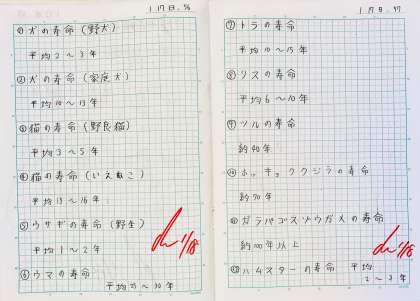 1月7日. 
① 犬の寿命(野犬)
平均2〜3年
② 犬の寿命(家庭犬)
平均10〜13年
③ 猫の寿命(野良猫)
平均3〜5年
④ 猫の寿命(いえねこ)
平均15〜16年
⑤ ウサギの寿命(野生)
平均1〜2年
⑥ ウマの寿命
平均25〜30年
1/18
1月7日.
⑦ トラの寿命
平均10〜15年
⑧ リスの寿命
平均6〜10年
⑨ ツルの寿命
約40年
⑩ ホッキョククジラの寿命
⑪ ガラパゴスゾウガメの寿命
約100年以上
⑫ ハムスターの寿命 平均
2〜3年
1/18